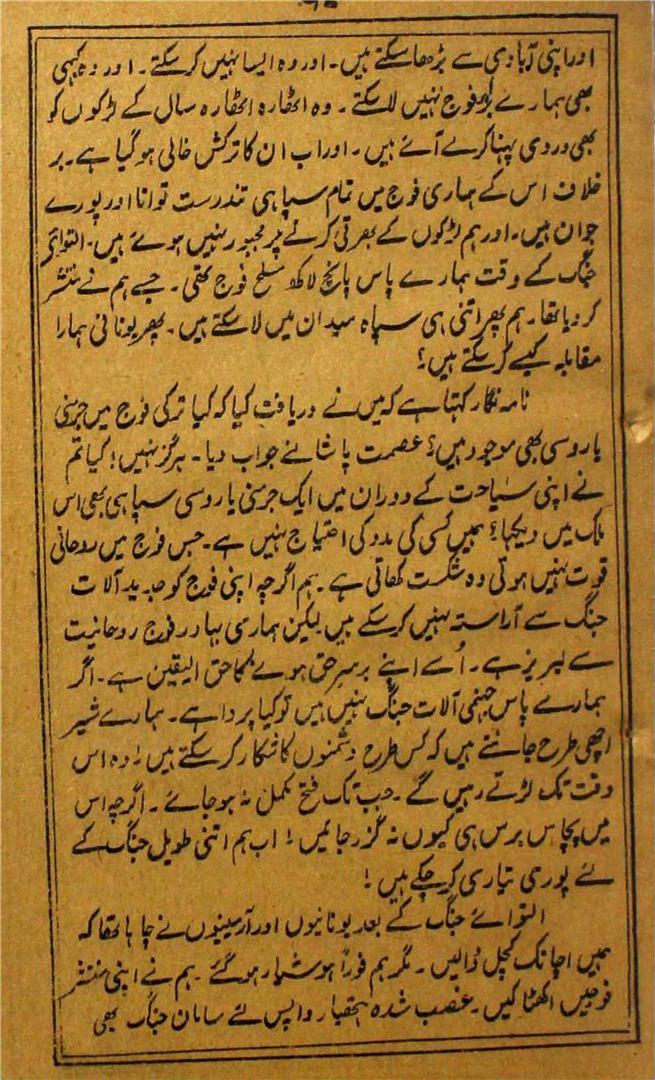 اور اپنی آبادی سے بڑھا سکتے ہیں۔ اور وہ ایسا نہیں کر سکتے۔ اور وہ کبھی
بھی ہمارے برابر فوج نہیں لا سکتے۔ وہ اٹھارہ اٹھارہ سال کے لڑکوں کو
بھی وردی پہنا کر لے آئے ہیں۔ اور اب ان کا ترکش خالی ہو گیا ہے۔ بر
خلاف اس کے ہماری فوج میں تمام سپاہی تندرست توانا اور پورے
جوان ہیں۔ اور ہم لڑکوں کے بھرتی کرنے پر مجبور نہیں ہوئے ہیں۔ التوائے
جنگ کے وقت ہمارے پاس پانچ لاکھ مسلح فوج تھی۔ جسے ہم نے منتشر
کر دیا تھا۔ ہم پھر اتنی ہی سپاہ میدان میں لا سکتے ہیں۔ پھر یونانی ہمارا
مقابلہ کیسے کر سکتے ہیں؟
نامہ نگار کہتا ہے کہ میں نے دریافت کیا کہ کیا ترکی فوج میں جرمنی
یا روسی بھی موجود ہیں؟ عصمت پاشا نے جواب دیا۔ ہرگز نہیں! کیا تم
نے اپنی سیاحت کے دوران میں ایک جرمنی یا روسی سپاہی بھی اس
ملک میں دیکھا؟ ہمیں کسی کی مدد کی احتیاج نہیں ہے۔ جس فوج میں روحانی
قوت نہیں ہوتی وہ شکست کھاتی ہے۔ ہم اگرچہ اپنی فوج کو جدید آلات
جنگ سے آراستہ نہیں کر سکے ہیں لیکن ہماری بہادر فوج روحانیت
سے لبریز ہے۔ اُسے اپنے برسر حق ہونے کا حق الیقین ہے۔ اگر
ہمارے پاس جہنمی آلات جنگ نہیں ہیں تو کیا پروا ہے۔ ہمارے شیر
اچھی طرح جانتے ہیں کہ کس طرح دشمنوں کا شکار کر سکتے ہیں! وہ اس
وقت تک لڑتے رہیں گے۔ جب تک فتح مکمل نہ ہو جائے۔ اگرچہ اس
میں پچاس برس ہی کیوں نہ گزر جائیں! اب ہم اتنی طویل جنگ کے
لئے پوری تیاری کر چکے ہیں!
التوائے جنگ کے بعد یونانیوں اور آرمینوں نے چاہا تھا کہ
ہمیں اچانک کچل ڈالیں۔ مگر ہم فوراً ہوشیار ہو گئے۔ ہم نے اپنی منتشر
فوجیں اکھٹا کیں۔ غصب شدہ ہتھیار واپس لئے سامان جنگ بھی